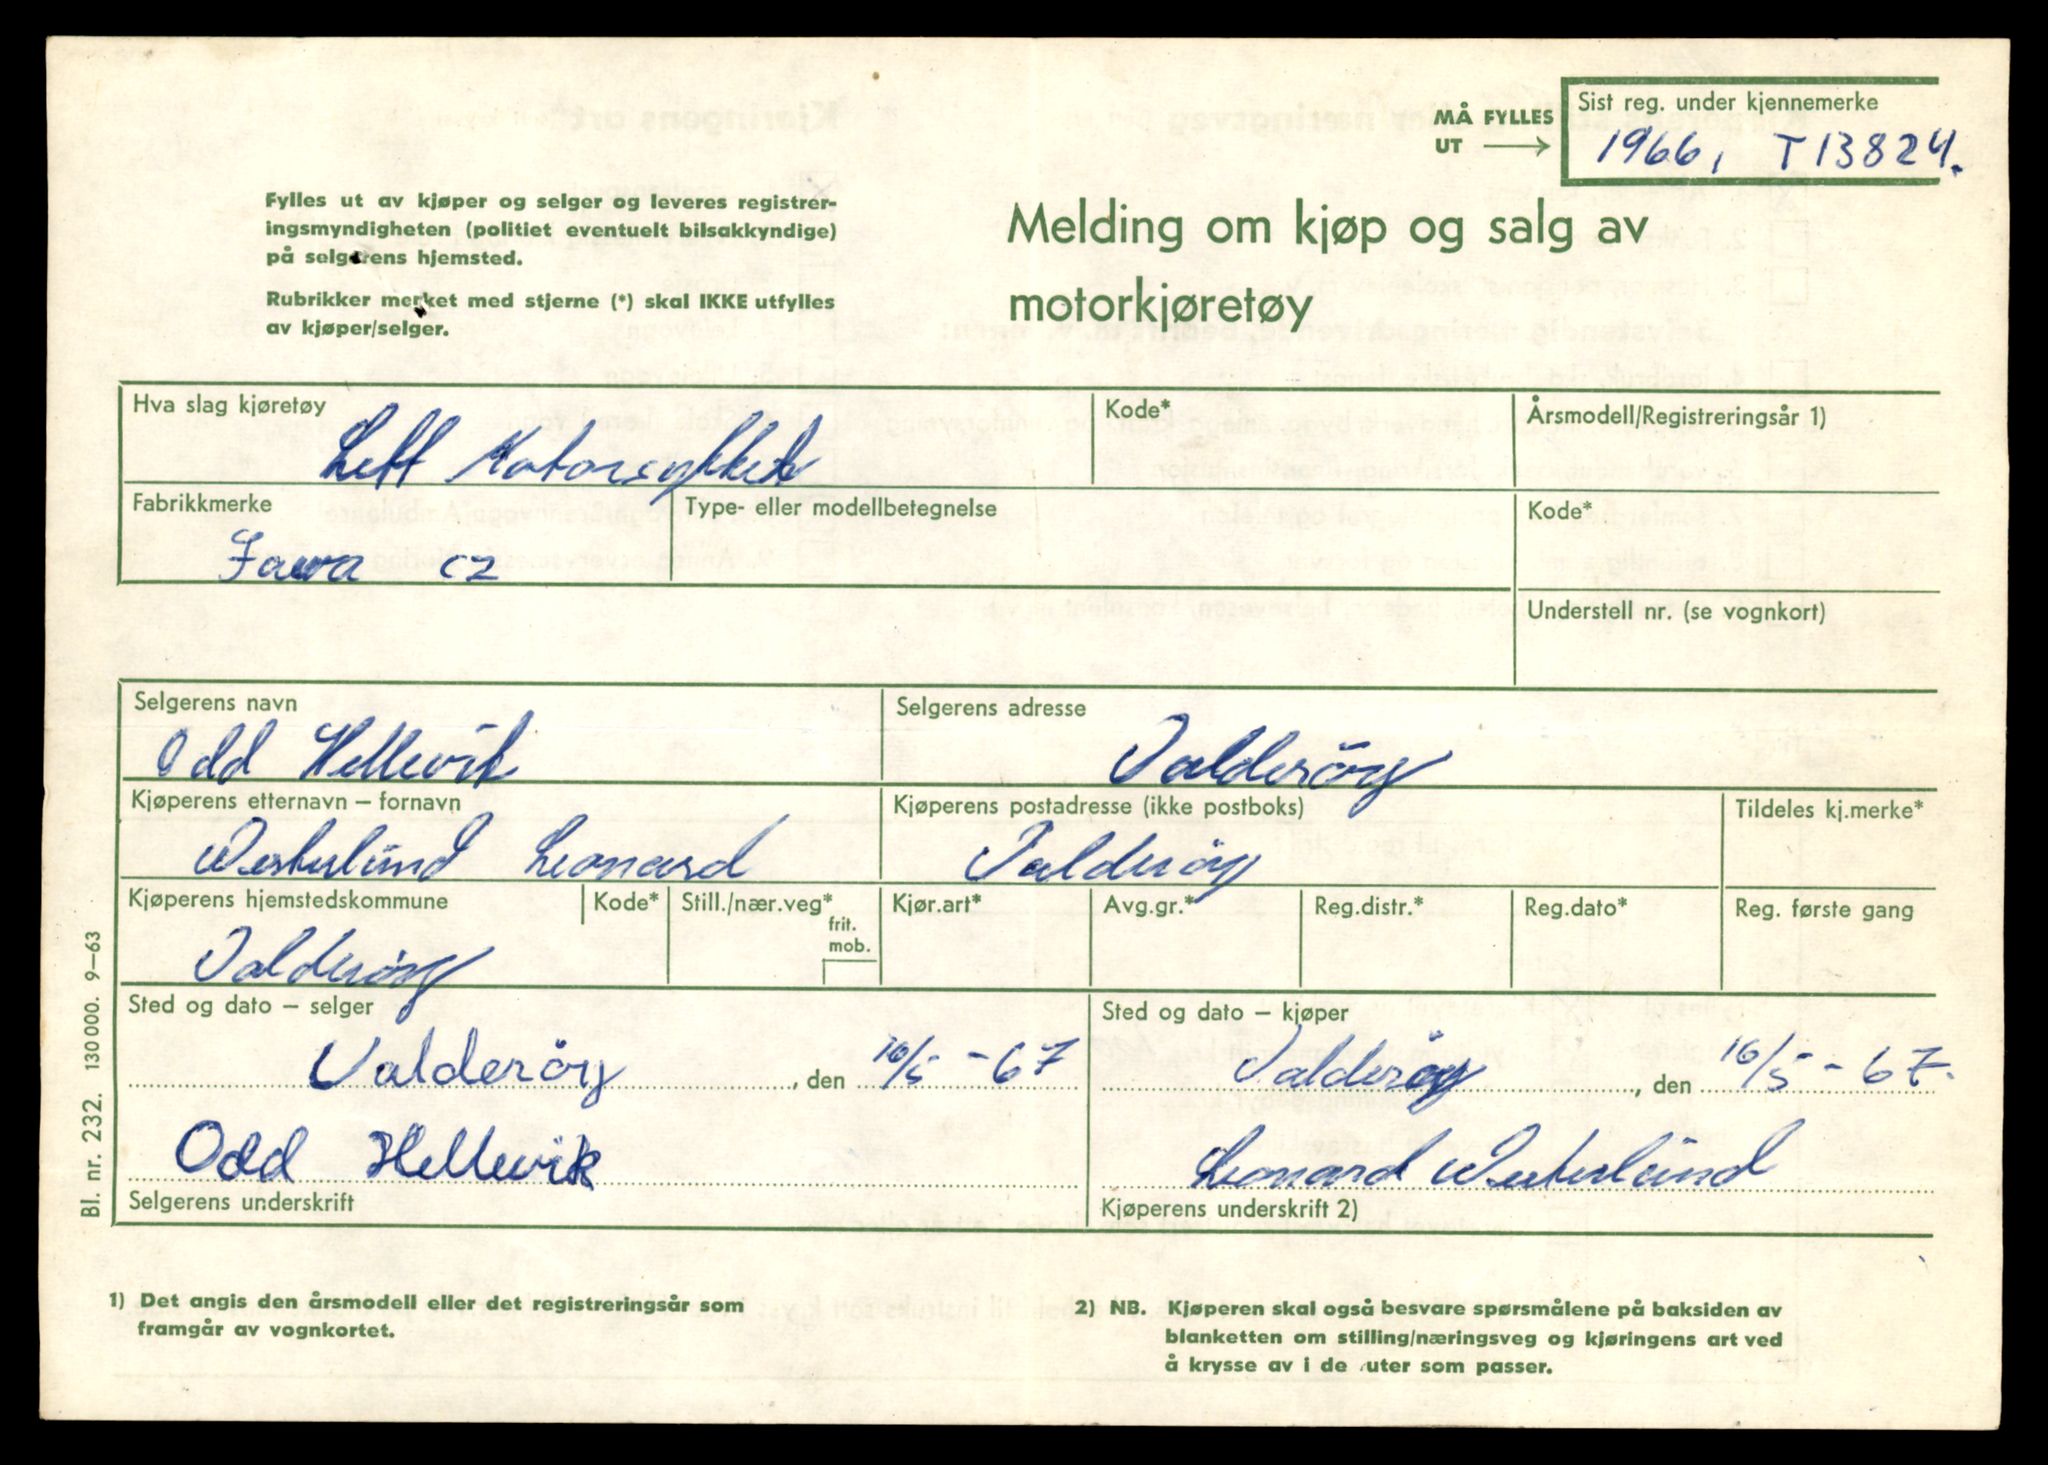 MÅ FYLLES
UT →
Sist reg. under kjennemerke
1966, T13824.
Fylles ut av kjøper og selger og leveres registrer-
ingsmyndigheten (politiet eventuelt bilsakkyndige)
på selgerens hjemsted.
Rubrikker merket med stjerne (*) skal IKKE utfylles
av kjøper/selger.
Melding om kjøp og salg av
motorkjøretøy
Hva slag kjøretøy
Lett Motorsykkel
Kode*
Årsmodell/Registreringsår 1)
Fabrikkmerke
Jawa cz
Type- eller modellbetegnelse
Kode*
Understell nr. (se vognkort)
Selgerens navn
Odd Hellevik
Selgerens adresse
Valderöy
Kjøperens etternavn – fornavn
Westerlund Leonard
Kjøperens postadresse (ikke postboks)
Valderöy
Tildeles kj.merke*
Kjøperens hjemstedskommune
Valderöy
Kode*
Still./nær.veg*
frit.
mob.
Kjør.art*
Avg.gr.*
Reg.distr.*
Reg.dato*
Reg. første gang
Sted og dato – selger
Valderöy, den 16/5 -67
Sted og dato – kjøper
Valderöy, den 16/5 -67.
Odd Hellevik
Selgerens underskrift
Leonard Westerlund
Kjøperens underskrift 2)
1) Det angis den årsmodell eller det registreringsår som
framgår av vognkortet.
2) NB. Kjøperen skal også besvare spørsmålene på baksiden av
blanketten om stilling/næringsveg og kjøringens art ved
å krysse av i de ruter som passer.
Bl. nr. 232. 130 000. 9–63